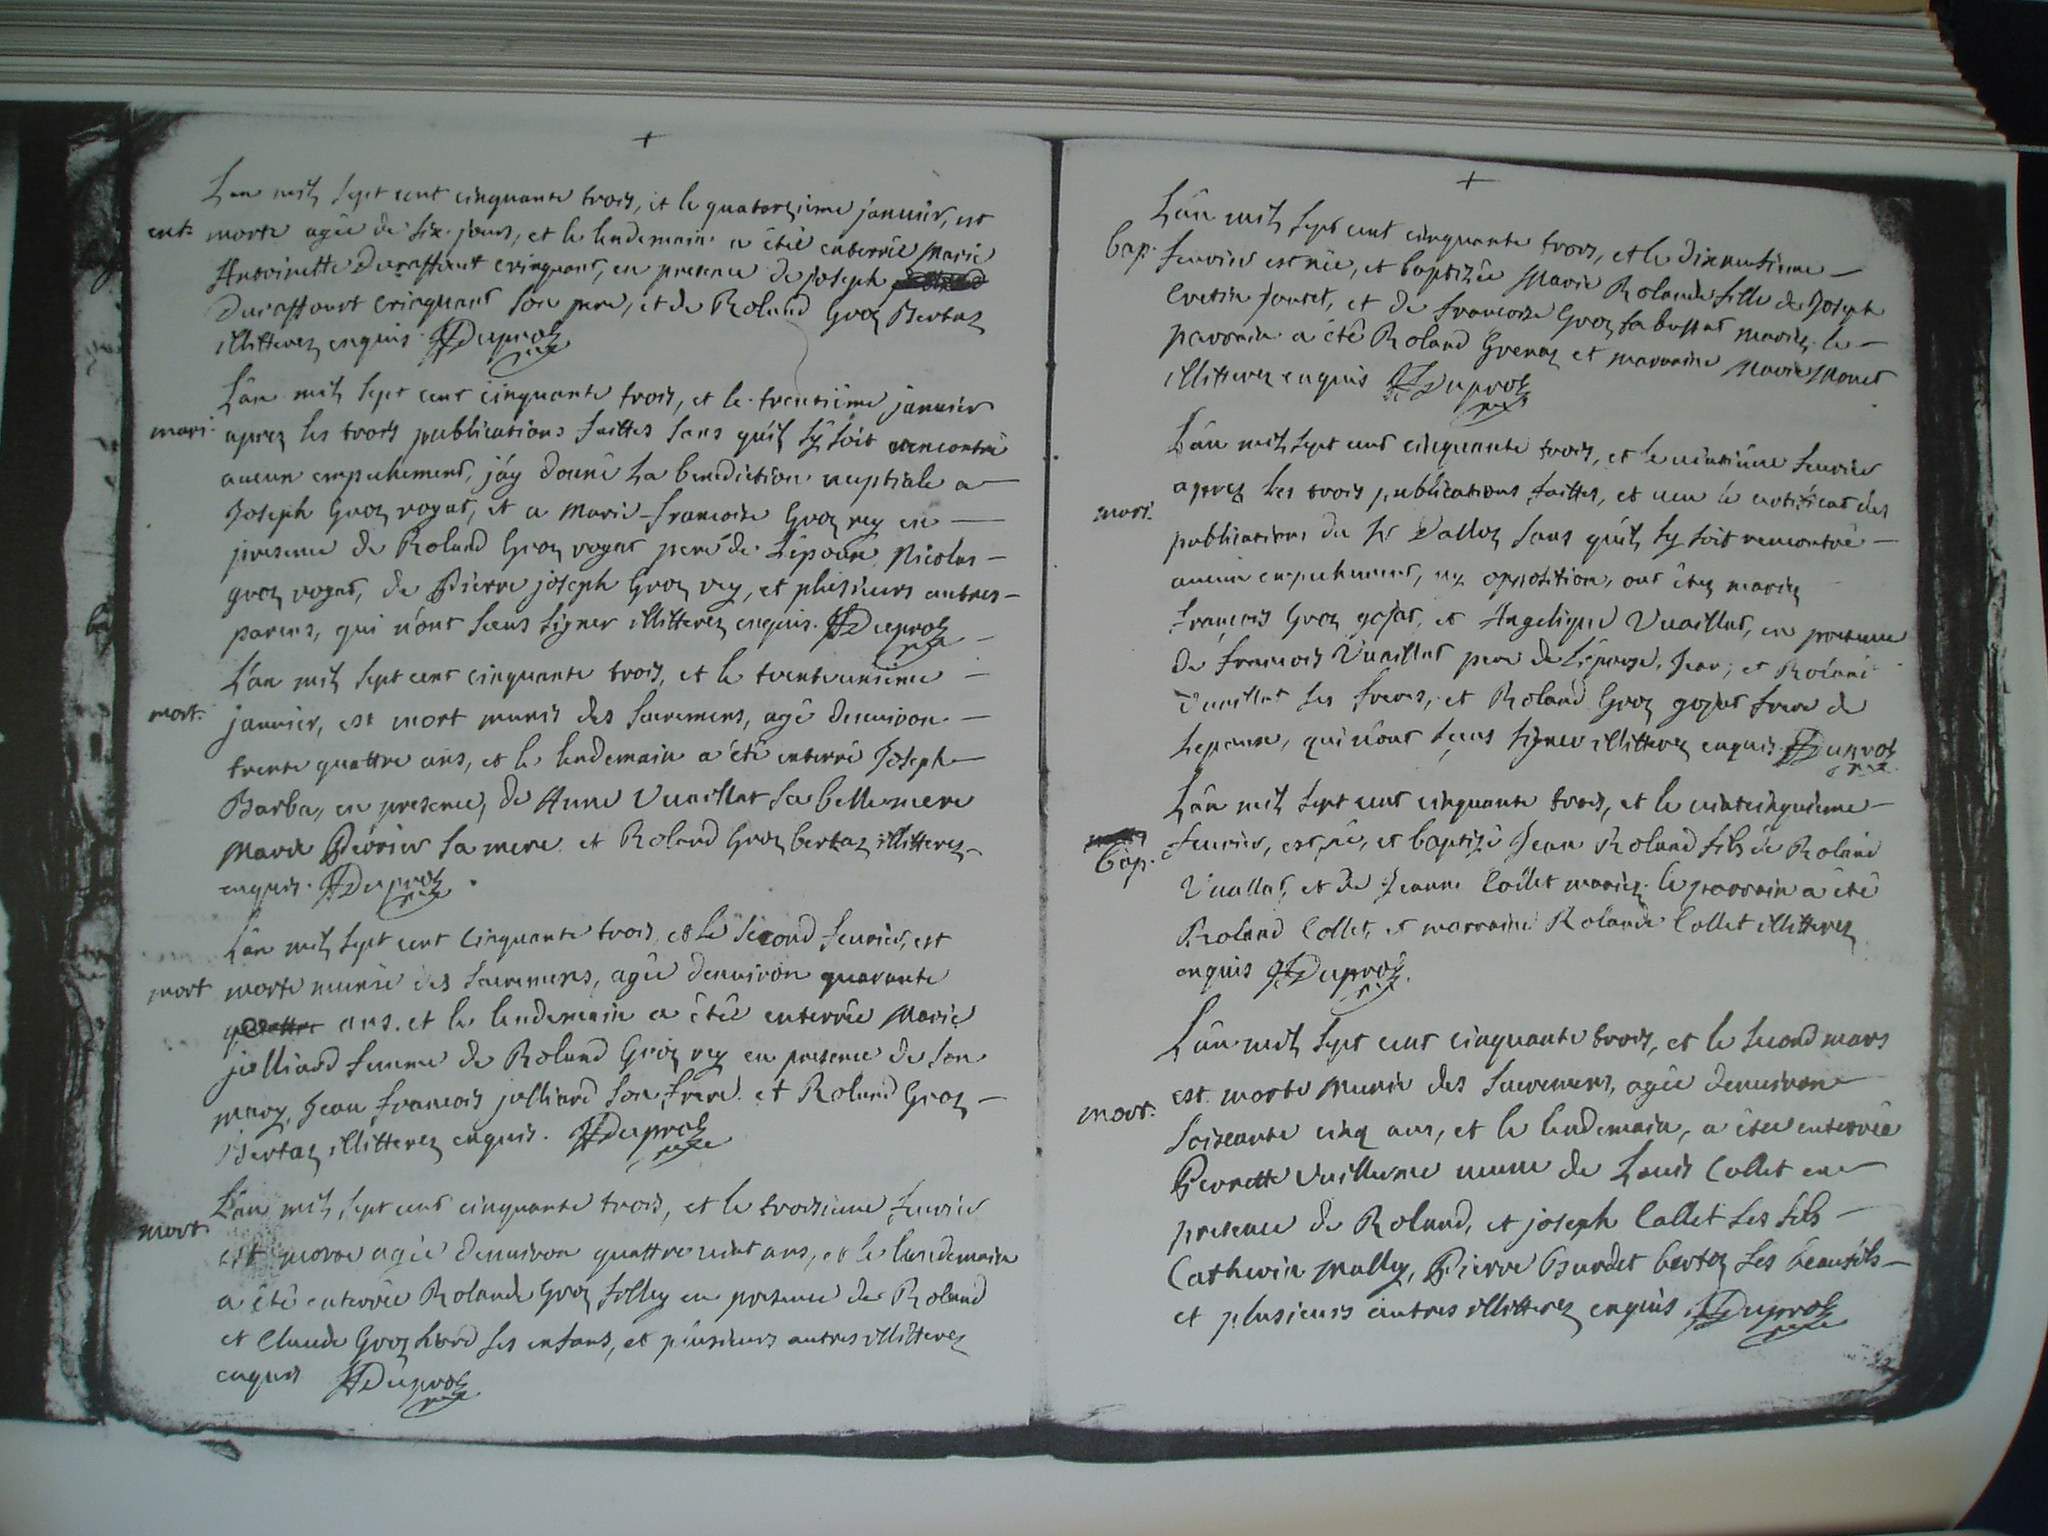 +
L'an mil sept cent cinquante trois, et le quatorzieme januier, est
ent. morte agée de six jours, et le lendemain a étéé enterrée Marie
Antoinette Duraffourt crinquant, en presence de joseph
Duraffourt crinquant son pere, et de Roland Groz Bertaz
illitterez enquis. Duproz
L'an mil sept cent cinquante trois, et le trentieme januier
mari. aprez les trois publications faittes sans qu'il sy soit rencontré
aucun empechement, j'ay donné la benediction nuptiale a
Joseph Groz voynt, et a Marie-francoise Groz rey en
presence de Roland Groz voynt pere de L'epoux, Nicolas
groz voynt, de Pierre joseph Groz rey, et plusieurs autres
parens, qui n'ont sceus signer illitterez enquis. Duproz
L'an mil sept cent cinquante trois, et le trenteunieme
mort. januier, est mort munis des sacremens, agé denuiron
trente quattre ans, et le lendemain a été enterré Joseph
Barba, en presence, de Anne Vuaillat sa belle mere
Marie Perrier sa mere et Roland Groz bertaz illitterez
enquis. Duproz
L'an mil sept cent cinquante trois, et le second feurier, est
mort morte munie des sacremens, agée denuiron quarante
quattre ans. et le lendemain a étéé enterrée Marie
jolliard femme de Roland Groz rey en presence de son
mary, Jean francois jolliard son frere et Roland Groz
Bertaz illitterez enquis. Duproz
L'an mil sept cent cinquante trois, et le troisieme feurier
mort. est morte agée denuiron quattre uint ans, et le lendemain
a été enterrée Rolande Groz folley en presence de Roland
et Claude Groz ses enfans, et plusieurs autres illitterez
enquis Duproz
+
L'an mil sept cent cinquante trois, et le dixnufieme
bap. feurier est née, et baptizée Marie Rolande fille de Joseph
Cretin joutet, et de francoise Groz mariez. le
parrain a été Roland Grenaz et marraine Marie Monet
illitterez enquis Duproz
L'an mil sept cent cinquante trois, et le uintieme feurier
mari. aprez les trois publications faittes, et ueu le certificat des
publications du Sr Dalloz sans qu'il sy soit rencontré
aucun empechement, ny opposition, ont étez mariez
françois Groz gojat, et Angelique Vuaillat, en presence
de francois Vuaillat pere de L'epouze, Jean, et Roland
Vuaillat ses freres, et Roland Groz gojat frere de
Lepoux, qui n'ont sceus signer illitterez enquis. Duproz
L'an mil sept cent cinquante trois, et le uintcinquieme
bap. feurier, est né, et baptizé Jean Roland fils de Roland
Vuallat, et de Jeanne Collet mariez. le parrain a été
Roland Collet, et marraine Rolande Collet illitterez
enquis Duproz.
L'an mil sept cent cinquante trois, et le second mars
mort. est morte munie des sacremens, agée denuiron
soixante cinq ans, et le lendemain, a étéé enterrée
Pierrette Vuillerme ueuue de Louis Collet en
presence de Roland, et joseph Collet ses fils
Catherin Malley, Pierre Burdet bertoz ses beaufils
et plusieurs autres illitterez enquis. Duproz